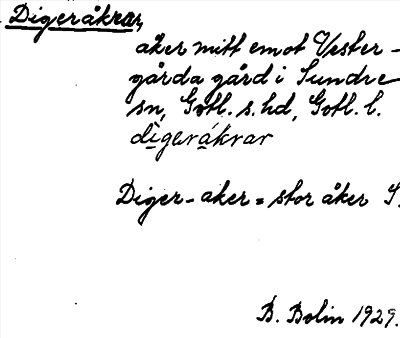 Digeråkrar,
åker mitt emot Vester-
gårda gård i Sundre
sn, Gotl. s. hd, Gotl. l.
digeråkrar
Diger-aker = stor åker S.
B. Bolin 1929.